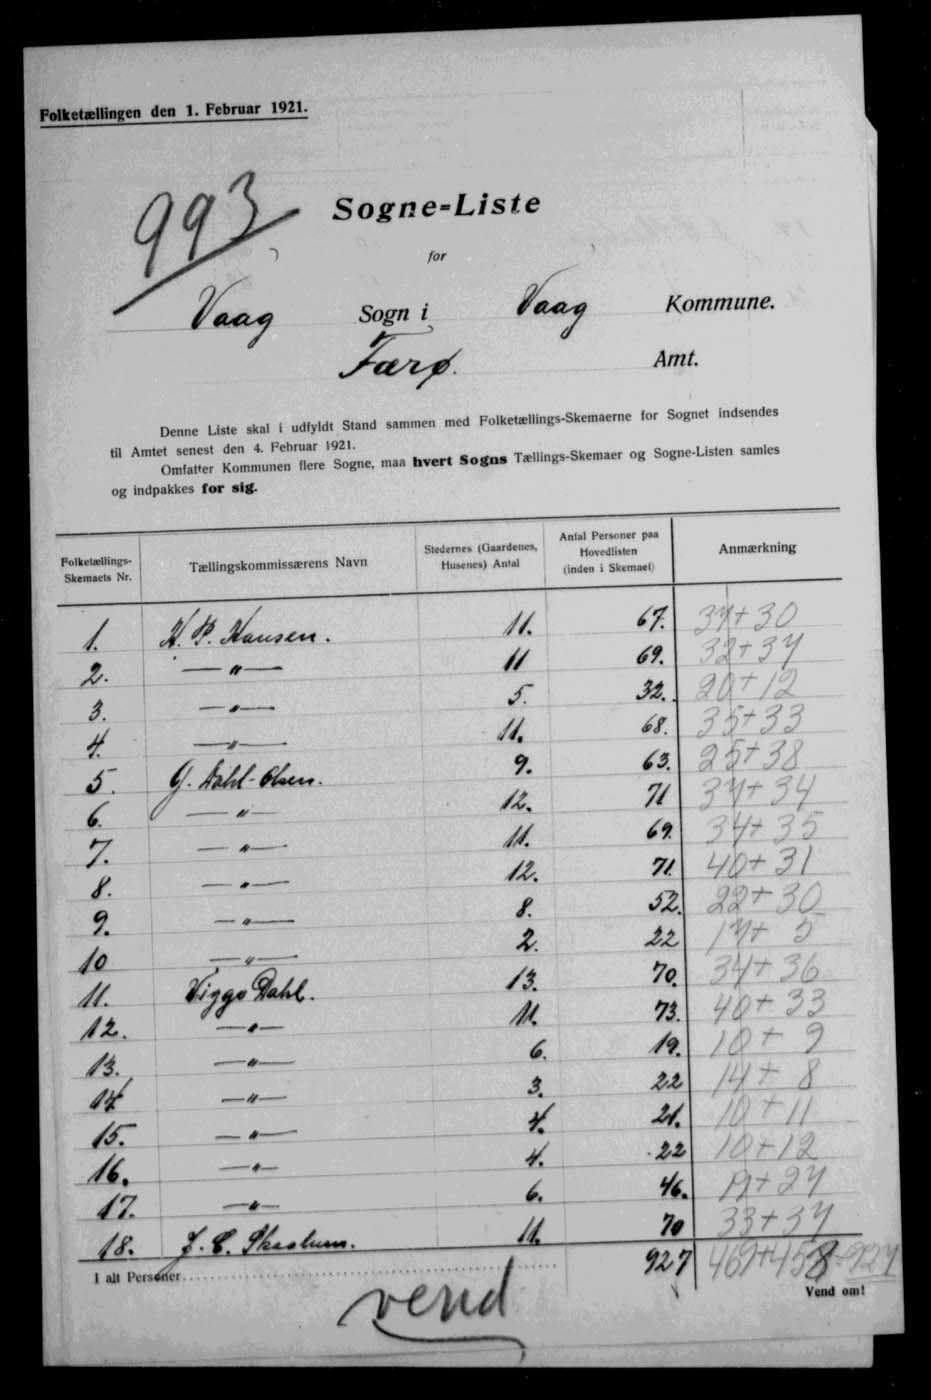 Folketællingen den 1. Februar 1921.
993
Sogne-Liste
for
Vaag Sogn i Vaag Kommune.
Færø. Amt.
Denne Liste skal i udfyldt Stand sammen med Folketællings-Skemaerne for Sognet indsendes
til Amtet senest den 4. Februar 1921.
Omfatter Kommunen flere Sogne, maa hvert Sogns Tællings-Skemaer og Sogne-Listen samles
og indpakkes for sig.
Folketællings-Skemaets Nr. Tællingskommissærens Navn Stedernes (Gaardenes, Husenes) Antal Antal Personer paa Hovedlisten (inden i Skemaet) Anmærkning
1. H. P. Hansen. 11. 67. 37+30
2. —„— 11 69. 32+37
3. —„— 5. 32. 20+12
4. —„— 11. 68. 35+33
5. G. Dahl-Olsen. 9. 63. 25+38
6. —„— 12. 71 37+34
7. —„— 11. 69. 34+35
8. —„— 12. 71. 40+31
9. —„— 8. 52. 22+30
10 —„— 2. 22 17+5
11. Viggo Dahl. 13. 70. 34+36
12. —„— 11. 73. 40+33
13. —„— 6. 19. 10+9
14 —„— 3. 22 14+8
15. —„— 4. 21. 10+11
16. —„— 4. 22 10+12
17. —„— 6. 46. 19+27
18. J. C. 11. 70 33+37
I alt Personer 927 469+458=927
Vend om!
vend